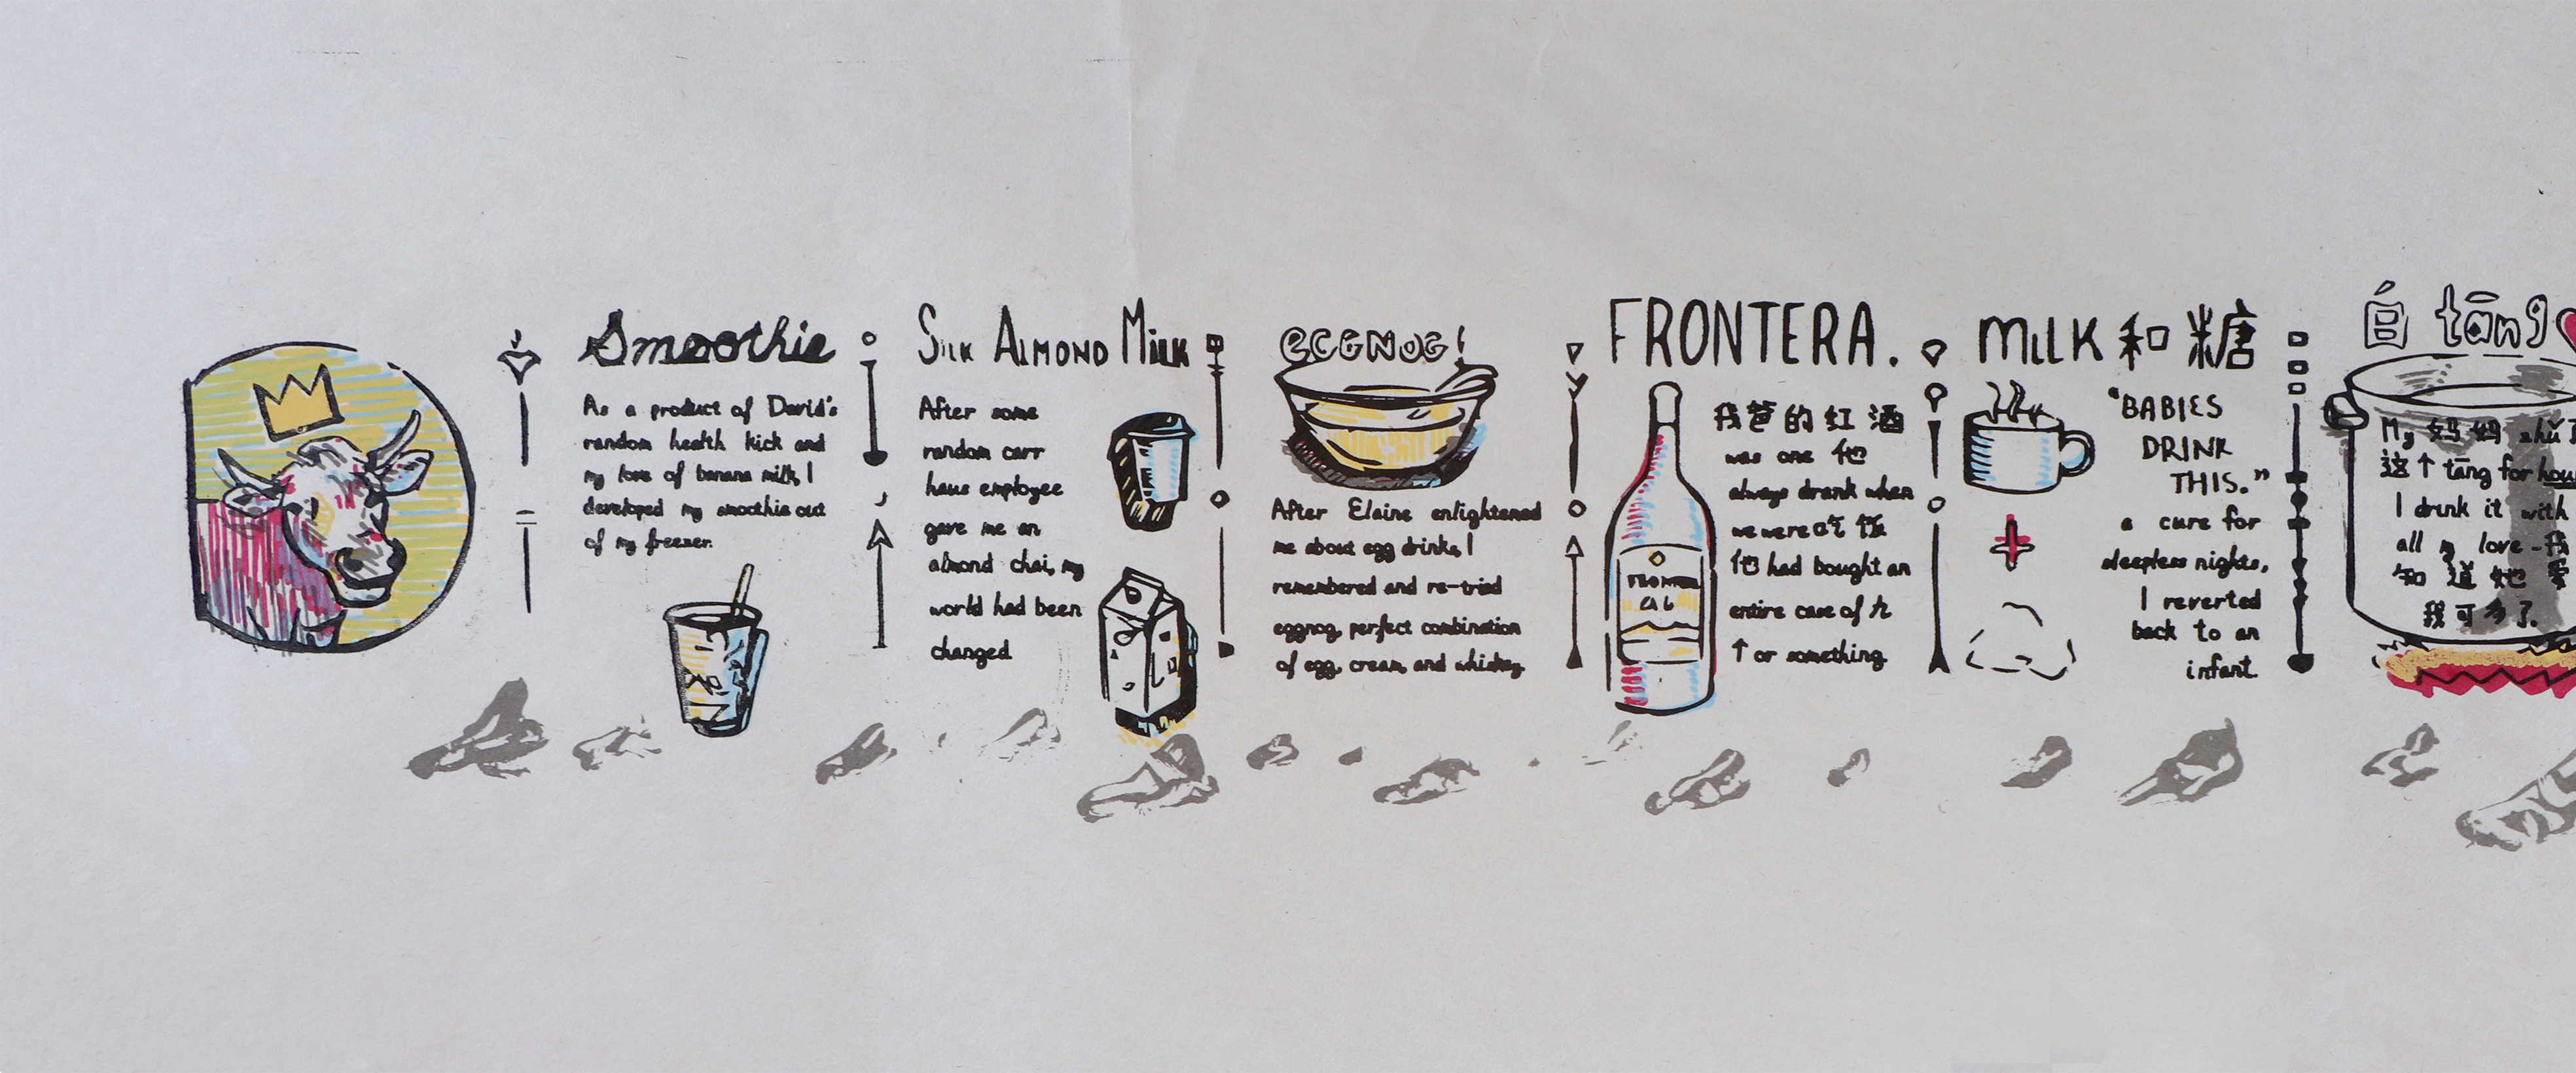 Smoothie
As a product of David's
random health kick and
my love of banana milk, I
developed my smoothie out
of my freezer.
SILK ALMOND MILK
After some
random carr
haus employee
gave me an
almond chai, my
world had been
changed
EGGNOG!
After Elaine enlightened
me about egg drinks, I
remembered and re-tried
eggnog, perfect combination
of egg, cream, and whiskey.
FRONTERA.
我爸的红酒
was one 他
always drank when
we were 吃饭
他 had bought an
entire case of 六
个 or something
FRONTERA
MILK 和 糖
"BABIES
DRINK
THIS."
a cure for
sleepless nights,
I reverted
back to an
infant.
白 tāng
My 妈妈 zhǔ
这个 tāng for hou
I drink it with
all my love - 我
知道她爱
我可多了.